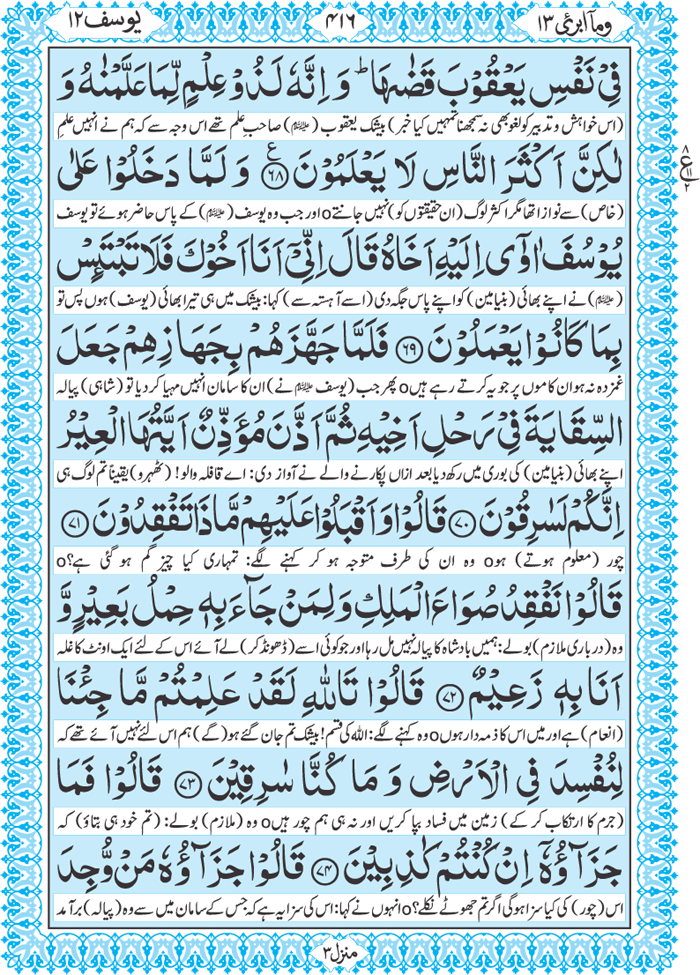 وماۤ ابرئ ۱۳
۴۱۶
یوسف ۱۲
فِیْ نَفْسِ یَعْقُوْبَ قَضٰىهَا ؕ وَ اِنَّهٗ لَذُوْ عِلْمٍ لِّمَا عَلَّمْنٰهُ وَ
(اس خواہش و تدبیر کو لغو بھی نہ سمجھنا تمہیں کیا خبر) بیشک یعقوب (علیہ السلام) صاحبِ علم تھے اس وجہ سے کہ ہم نے انہیں علمِ
لٰكِنَّ اَكْثَرَ النَّاسِ لَا یَعْلَمُوْنَ ﴿۶۸﴾ ع وَ لَمَّا دَخَلُوْا عَلٰی
ع ۸ ۱۱ ۲
(خاص) سے نوازا تھا مگر اکثر لوگ (ان حقیقتوں کو) نہیں جانتے o اور جب وہ یوسف (علیہ السلام) کے پاس حاضر ہوئے تو یوسف
یُوْسُفَ اٰوٰۤی اِلَیْهِ اَخَاهُ قَالَ اِنِّیْۤ اَنَا اَخُوْكَ فَلَا تَبْتَىِٕسْ
(علیہ السلام) نے اپنے بھائی (بنیامین) کو اپنے پاس جگہ دی (اسے آہستہ سے) کہا: بیشک میں ہی تیرا بھائی (یوسف) ہوں پس تو
بِمَا كَانُوْا یَعْمَلُوْنَ ﴿۶۹﴾ فَلَمَّا جَهَّزَهُمْ بِجَهَازِهِمْ جَعَلَ
غمزدہ نہ ہو ان کاموں پر جو یہ کرتے رہے ہیں o پھر جب (یوسف علیہ السلام نے) ان کا سامان انہیں مہیا کر دیا تو (شاہی) پیالہ
السِّقَایَةَ فِیْ رَحْلِ اَخِیْهِ ثُمَّ اَذَّنَ مُؤَذِّنٌ اَیَّتُهَا الْعِیْرُ
اپنے بھائی (بنیامین) کی بوری میں رکھ دیا بعد ازاں پکارنے والے نے آواز دی: اے قافلہ والو! (ٹھہرو) یقیناً تم لوگ ہی
اِنَّكُمْ لَسٰرِقُوْنَ ﴿۷۰﴾ قَالُوْا وَ اَقْبَلُوْا عَلَیْهِمْ مَّا ذَا تَفْقِدُوْنَ ﴿۷۱﴾
چور (معلوم ہوتے) ہو o وہ ان کی طرف متوجہ ہو کر کہنے لگے: تمہاری کیا چیز گم ہو گئی ہے؟ o
قَالُوْا نَفْقِدُ صُوَاعَ الْمَلِكِ وَ لِمَنْ جَآءَ بِهٖ حِمْلُ بَعِیْرٍ وَّ
وہ (درباری ملازم) بولے: ہمیں بادشاہ کا پیالہ نہیں مل رہا اور جو کوئی اسے (ڈھونڈ کر) لے آئے اس کے لئے ایک اونٹ کا غلہ
اَنَا بِهٖ زَعِیْمٌ ﴿۷۲﴾ قَالُوْا تَاللّٰهِ لَقَدْ عَلِمْتُمْ مَّا جِئْنَا
(انعام) ہے اور میں اس کا ذمہ دار ہوں o وہ کہنے لگے: اللہ کی قسم! بیشک تم جان گئے ہو (گے) ہم اس لئے نہیں آئے تھے کہ
لِنُفْسِدَ فِی الْاَرْضِ وَ مَا كُنَّا سٰرِقِیْنَ ﴿۷۳﴾ قَالُوْا فَمَا
(جرم کا ارتکاب کر کے) زمین میں فساد بپا کریں اور نہ ہی ہم چور ہیں o وہ (ملازم) بولے: (تم خود ہی بتاؤ) کہ
جَزَآؤُهٗۤ اِنْ كُنْتُمْ كٰذِبِیْنَ ﴿۷۴﴾ قَالُوْا جَزَآؤُهٗ مَنْ وُّجِدَ
اس (چور) کی کیا سزا ہوگی اگر تم جھوٹے نکلے؟ o انہوں نے کہا: اس کی سزا یہ ہے کہ جس کے سامان میں سے وہ (پیالہ) برآمد
منزل ۳